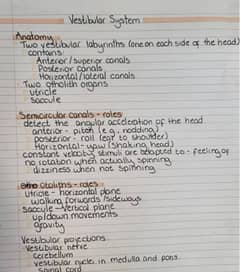 Vestibular System
Anatomy
Two vestibular labyrinths (one on each side of the head)
contains:
Anterior/superior canals
Posterior canals
Horizontal/lateral canals
Two otolith organs
utricle
saccule
Semicircular canals - roles
detect the angular acceleration of the head
anterior - pitch (e.g. nodding)
posterior - roll (ear to shoulder)
Horizontal - yaw (shaking head)
constant velocity stimuli are adapted to - feeling of
no rotation when actually spinning
dizziness when not spinning
Otoliths - roles
Utricle - horizontal plane
walking forwards/sideways
saccule - vertical plane
up/down movements
gravity
Vestibular projections
Vestibular nerve
cerebellum
vestibular nuclei in medulla and pons
spinal cord